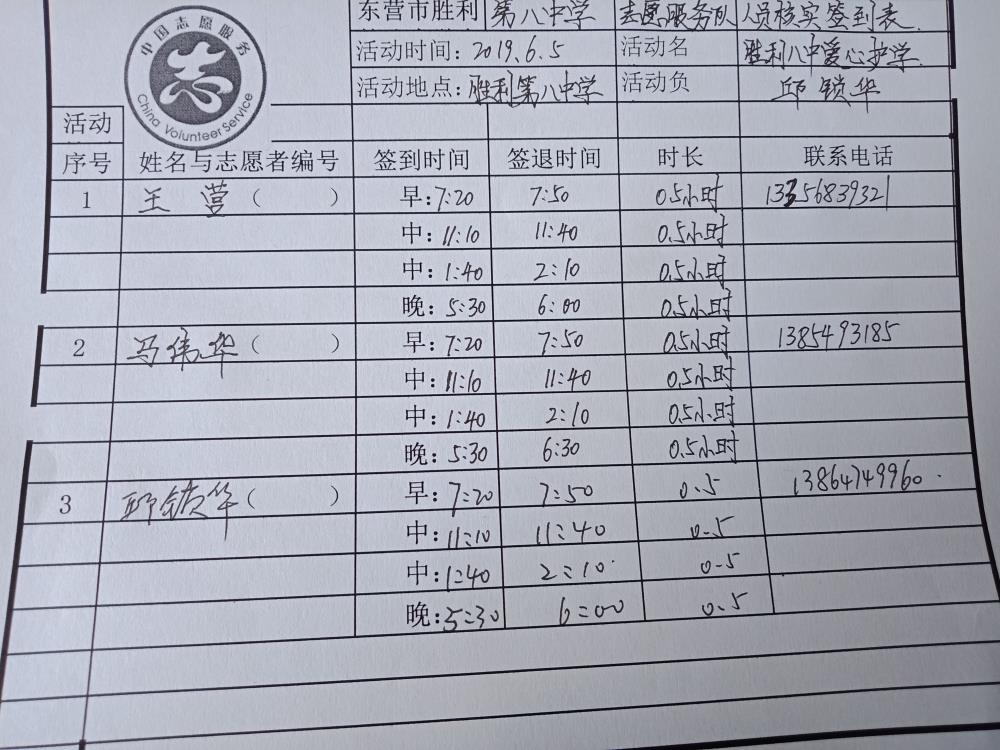 中国志愿服务
China Volunteer Service
东营市胜利 第八中学 志愿服务队 人员核实签到表.
活动时间: 2019.6.5 活动名 胜利八中爱心护学.
活动地点: 胜利第八中学 活动负 邱锁华
活动
序号 姓名与志愿者编号 签到时间 签退时间 时长 联系电话
1 王营( ) 早:7:20 7:50 0.5小时 13356839321
中:11:10 11:40 0.5小时
中:1:40 2:10 0.5小时
晚:5:30 6:00 0.5小时
2 马伟华( ) 早:7:20 7:50 0.5小时 1385493185
中:11:10 11:40 0.5小时
中:1:40 2:10 0.5小时
晚:5:30 6:30 0.5小时
3 邱锁华( ) 早:7:20 7:50 0.5 13864749960.
中:11:10 11:40 0.5
中:1:40 2:10 0.5
晚:5:30 6:00 0.5